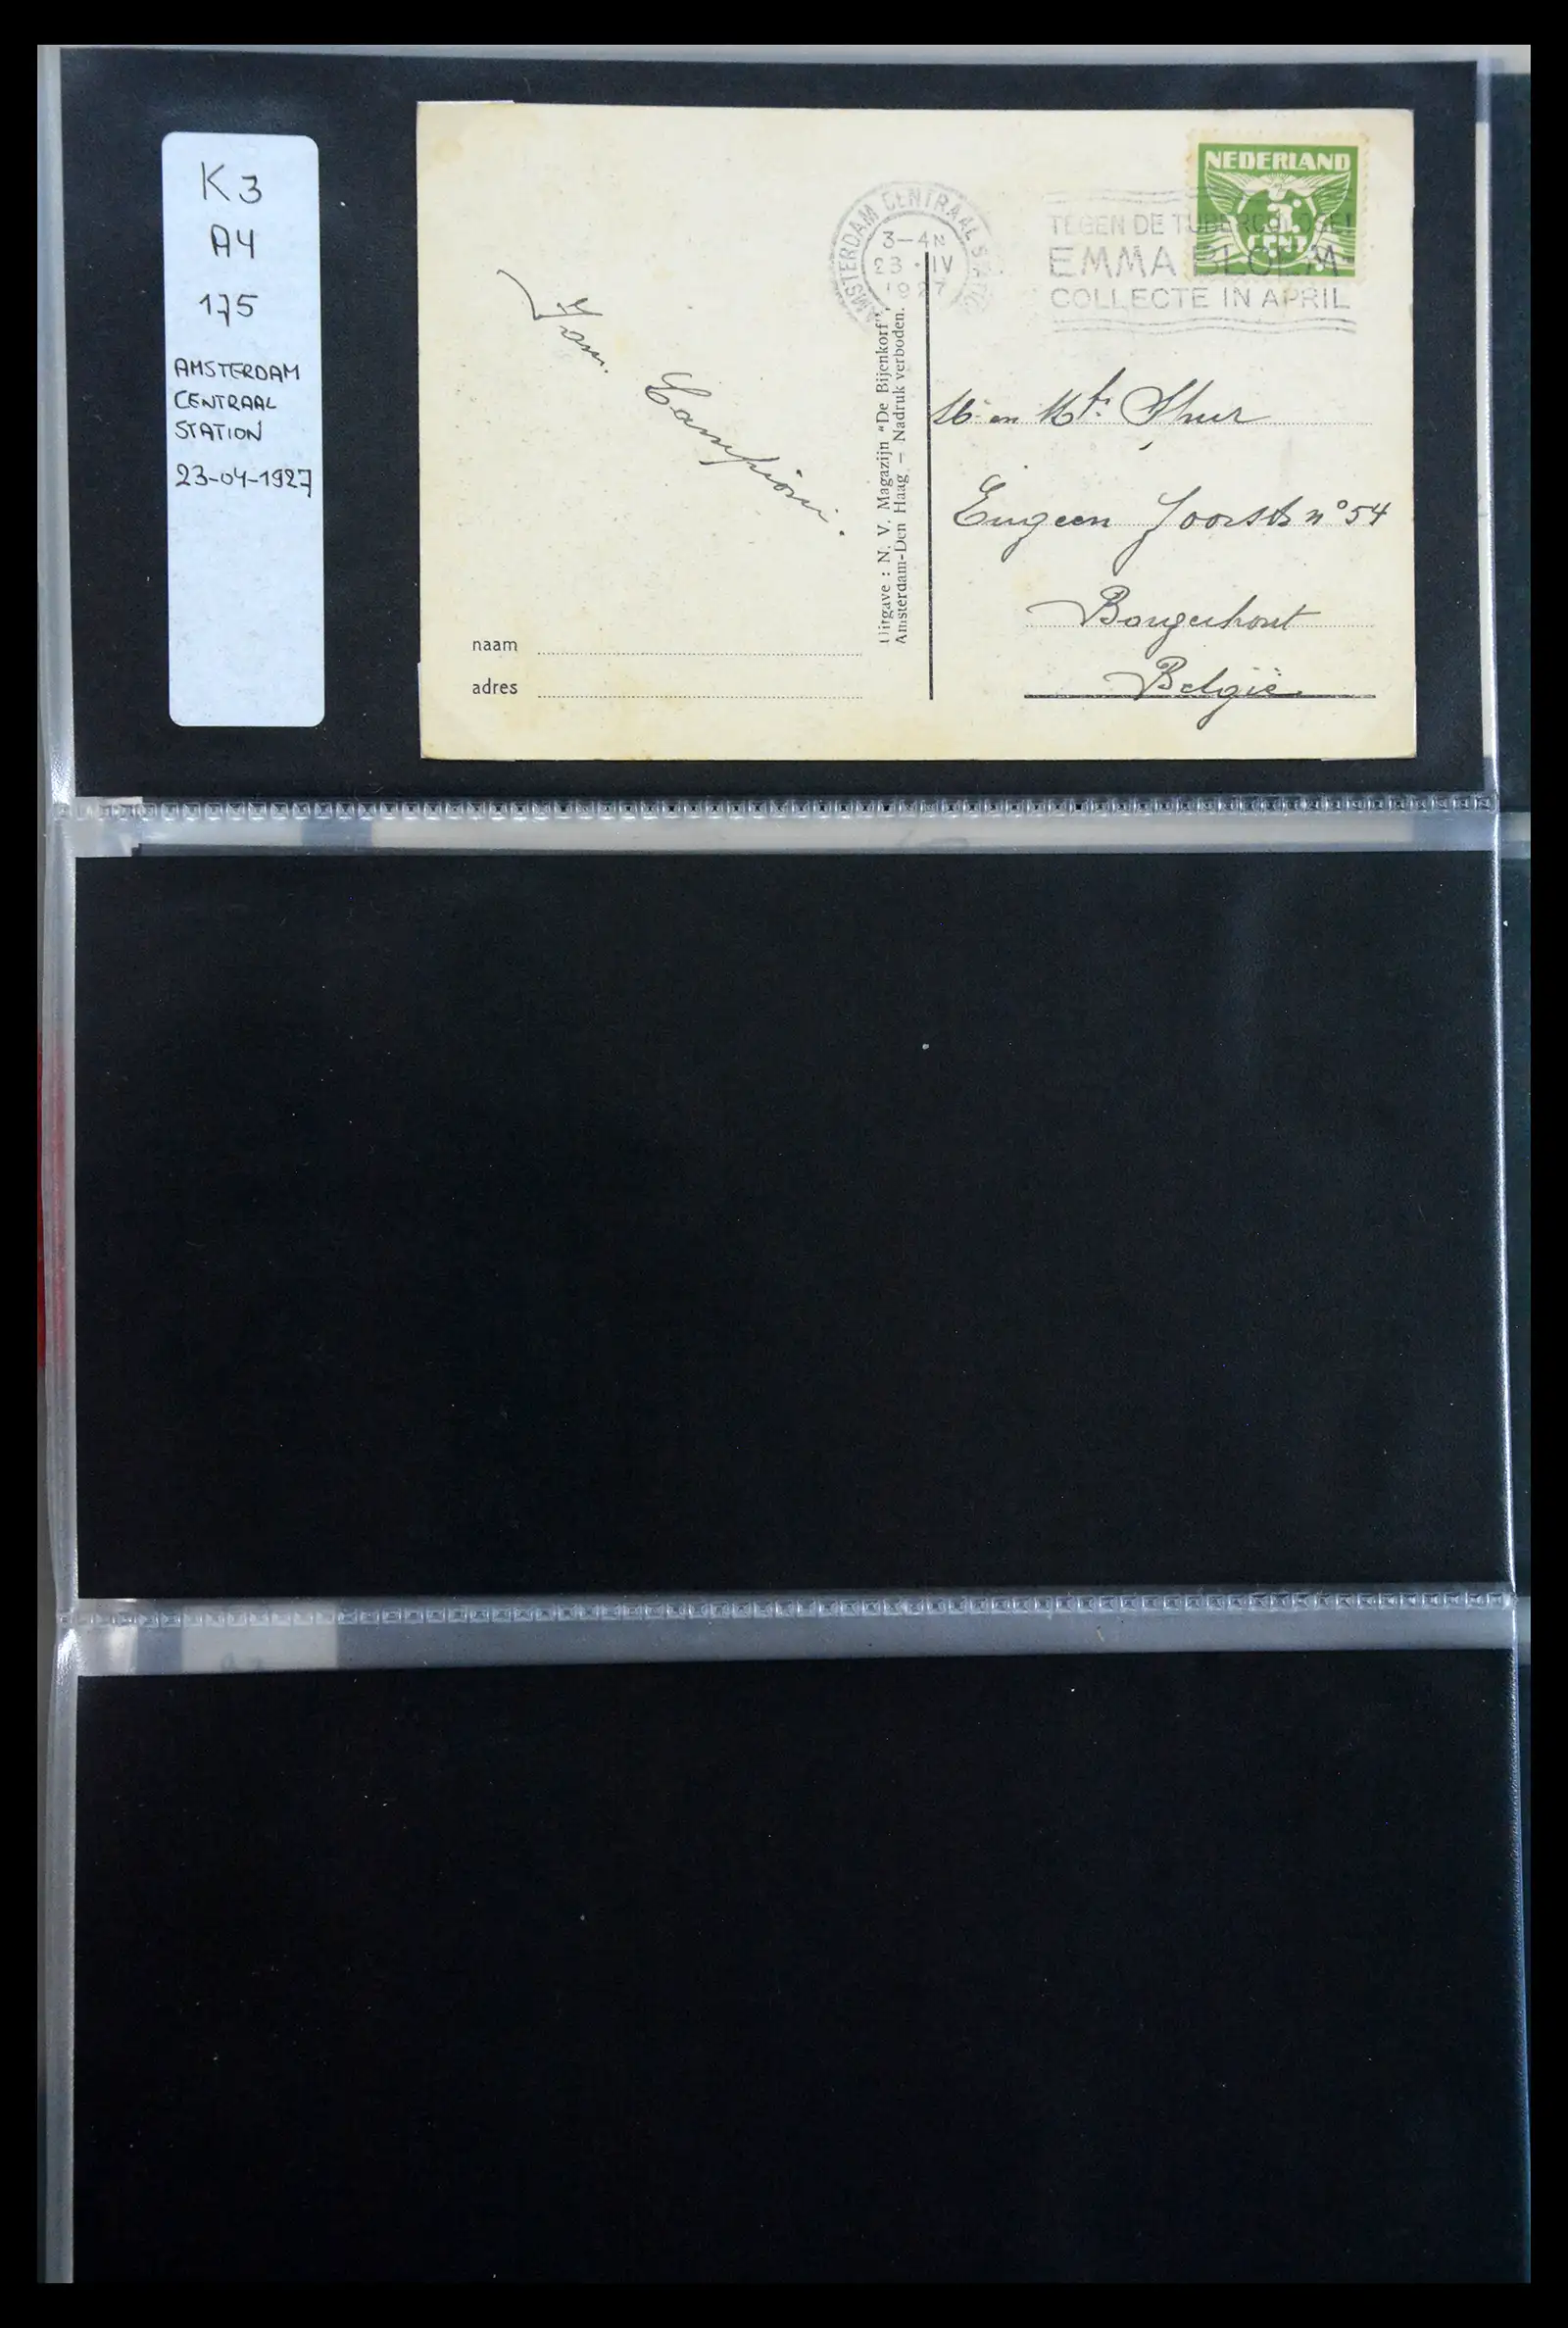 K3
A4
175
AMSTERDAM
CENTRAAL
STATION
23-04-1927
AMSTERDAM CENTRAAL STATION
3-4N
23 · IV
1927
NEDERLAND
3
CENT
TEGEN DE TUBERCULOSE!
EMMA BLOEM
COLLECTE IN APRIL
Fam.
Campioni.
Uitgave : N. V. Magazijn "De Bijenkorf",
Amsterdam-Den Haag — Nadruk verboden.
en
n° 54
België
naam
adres